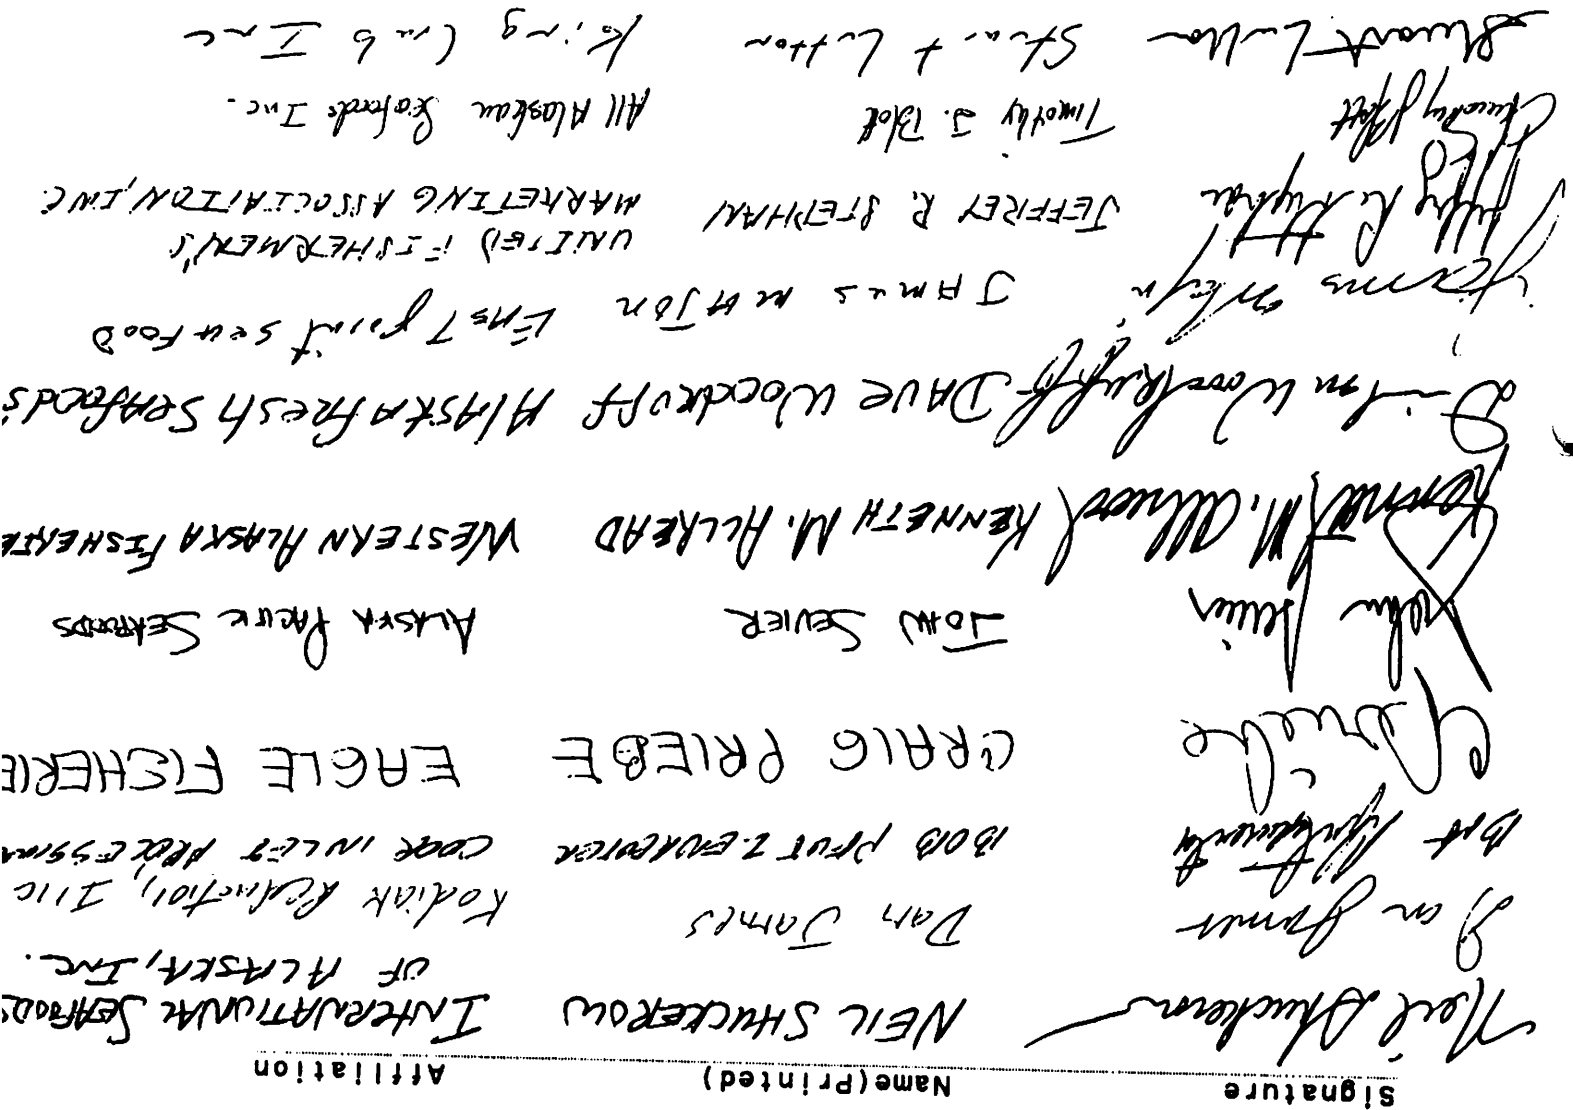 Signature Name(Printed) Affiliation
Neil Shuckerow NEIL SHUCKEROW INTERNATIONAL SEAFOODS
OF ALASKA, Inc.
Dan James Dan James Kodiak Reduction, Inc
Bob BOB COOK INLET PROCESSIN
C Priebe CRAIG PRIEBE EAGLE FISHERIE
John Sevier JOHN SEVIER ALASKA PACIFIC SEAFOODS
Kenneth M. Allread KENNETH M. ALLREAD WESTERN ALASKA FISHERIE
Woodruff DAVE WOODRUFF AlASKA FRESH SEAfoods
James Major JAMES MAJOR EAST point seafood
UNITED FISHERMEN'S
Jeffrey R. Stephan JEFFREY R. STEPHAN MARKETING ASSOCIATION, INC.
Timothy J. Blott Timothy J. Blott All Alaskan Seafoods Inc.
Stuart Lutton Stuart Lutton King Crab Inc